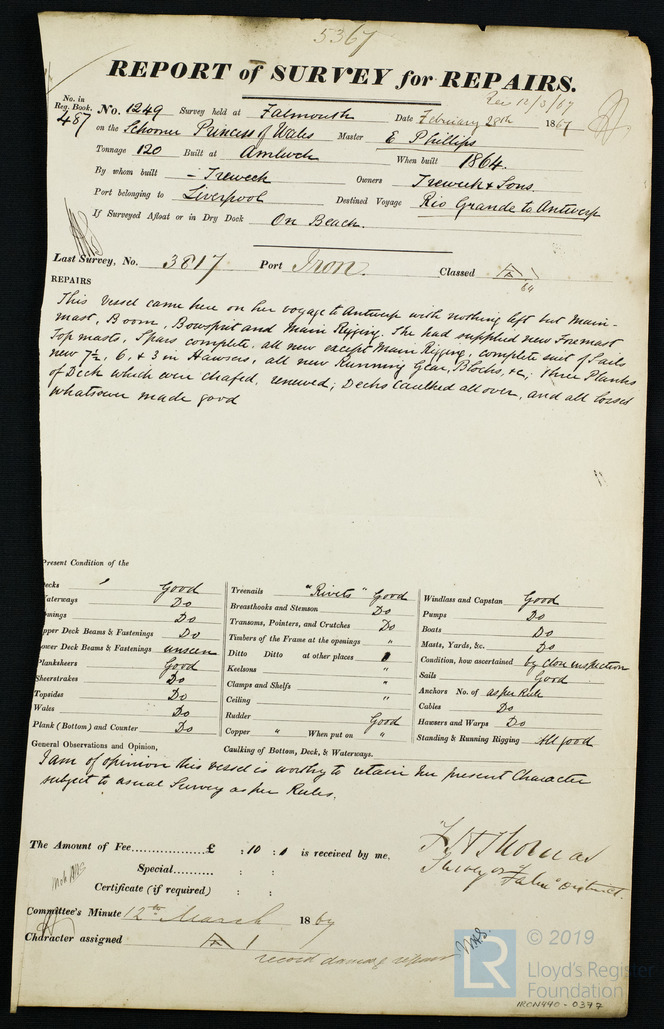 5367
REPORT of SURVEY for REPAIRS.
Rec 12/3/67
No. in Reg. Book. 487 No. 1249 Survey held at Falmouth Date February 28th 1867
on the Schooner Princess of Wales Master E Phillips
Tonnage 120 Built at Amlwch When built 1864
By whom built - Treweek Owners Treweek & Sons
Port belonging to Liverpool Destined Voyage Rio Grande to Antwerp
If Surveyed Afloat or in Dry Dock On Beach.
Last Survey, No. 3817 Port Iron. Classed A 1
64
REPAIRS
This vessel came here on her voyage to Antwerp with nothing left but Main-
mast, Boom, Bowsprit and Main Rigging. She had supplied new Foremast
Top masts, Spars complete, all new except Main Rigging, complete suit of Sails
new 7½, 6, & 3 in Hawsers, all new Running Gear, Blocks, &c, three Planks
of Deck which were chafed, renewed; Decks Caulked all over, and all losses
whatsoever made good
Present Condition of the
ecks Good Treenails "Rivets" Good Windlass and Capstan Good
aterways Do Breasthooks and Stemson Do Pumps Do
enings Do Transoms, Pointers, and Crutches Do Boats Do
pper Deck Beams & Fastenings Do Timbers of the Frame at the openings " Masts, Yards, &c. Do
ower Deck Beams & Fastenings unseen Ditto Ditto at other places Condition, how ascertained by close inspection
Planksheers Good Keelsons " Sails Good
Sheerstrakes Do Clamps and Shelfs " Anchors No. of as per Rule
Topsides Do Ceiling " Cables Do
Wales Do Rudder Good Hawsers and Warps Do
Plank (Bottom) and Counter Do Copper " When put on " Standing & Running Rigging All good
General Observations and Opinion, Caulking of Bottom, Deck, & Waterways.
I am of opinion this vessel is worthy to retain her present Character
subject to usual Survey as per Rules.
The Amount of Fee............... £ : 10 : is received by me,
Special.......... : :
Certificate (if required) : :
Thomas
Surveyor Falm District.
Committee's Minute 12th March 1867
Character assigned A 1
record damage repair
© 2019
LR
Lloyd's Register
Foundation
IRON440-0397